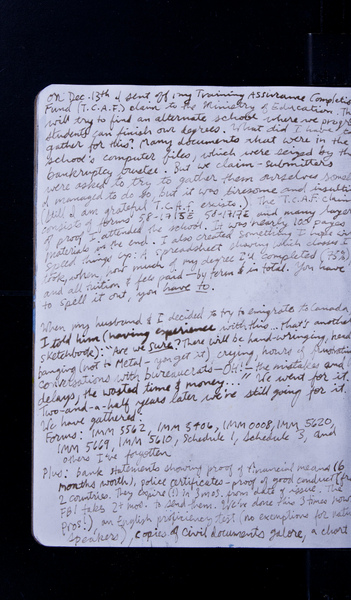 On Dec. 13th I sent off my Training Assurance Completion
Fund (T.C.A.F.) claim to the Ministry of Education. They
will try to find an alternate school where we
students can finish our degrees. What did I have to
gather for this? Many documents that were in the
school's computer files, which were seized by the
bankruptcy trustee. But we claim-submitters
were asked to try to gather them ourselves
I managed to do so but it was tiresome and
(Still I am grateful T.C.A.F. exists.) The T.C.A.F. claim
consists of forms 58-1715E 58-1717E and many pages
of proof I attended the school. It was nearly 100 pages
materials in the end. I also created something I hope will
speed things up: A spreadsheet showing which classes I
took, when, how much of my degree I'd completed (75%)
and all tuition & fees paid - by term & in total. You have
to spell it out, you have to.
When my husband & I decided to try to emigrate to Canada,
I told him (having experience with this... That's another
sketchbook): "Are we sure? There will be hand-wringing, head
banging (not to Metal - forget it), crying, hours of
conversations with bureaucrats - OH! - the mistakes and
delays, the wasted time & money..." We went for it.
Two-and-a-half years later we're still going for it.
We have gathered:
Forms: IMM 5562, IMM 5406, IMM 0008, IMM 5620,
IMM 5669, IMM 5610, Schedule 1, Schedule 3, and
others I've forgotten
Plus: bank statements showing proof of financial means (6
months worth), police certificates - proof of good conduct (from
2 countries. They expire (!) in 3 mos. from date of issue. The
FBI takes 2+ mos. to send them. We've done this 3 times now
), an English proficiency test (no exemptions for native
speakers), copies of civil documents galore, a chart